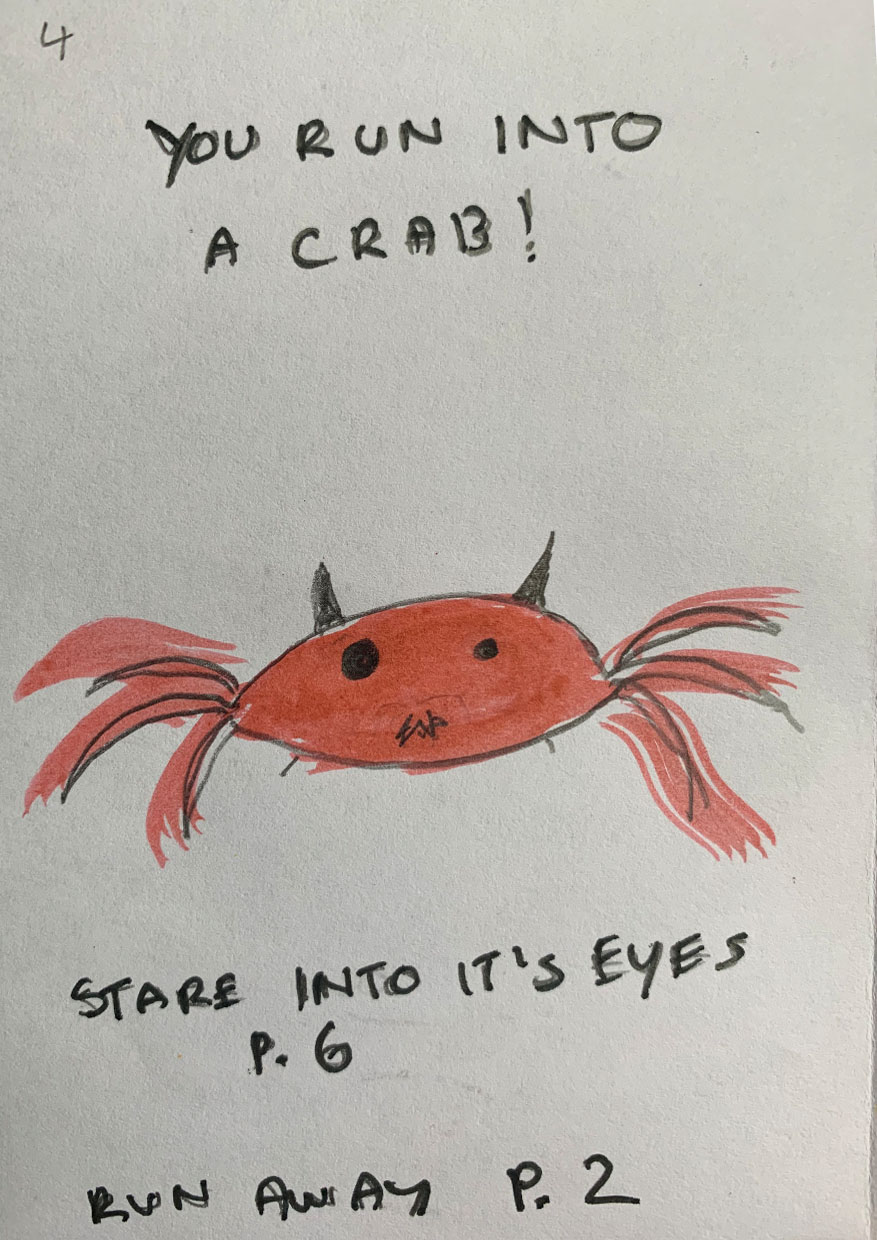 4
YOU RUN INTO
A CRAB!
STARE INTO IT'S EYES
P. 6
RUN AWAY P. 2